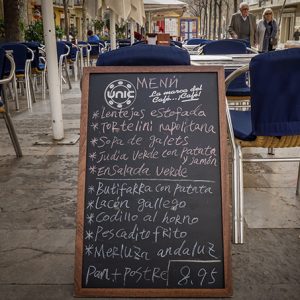 unic
MENÚ
UNIC
La marca del
Café...¡Café!
*Lentejas estofada
*Tortelini napolitana
*Sopa de galets
*Judia Verde con patata
y jamón
*Ensalada Verde
*Butifarra con patata
*Lacón gallego
*Codillo al horno
*Pescadito frito
*Merluza andaluz
Pan + postre 8.95